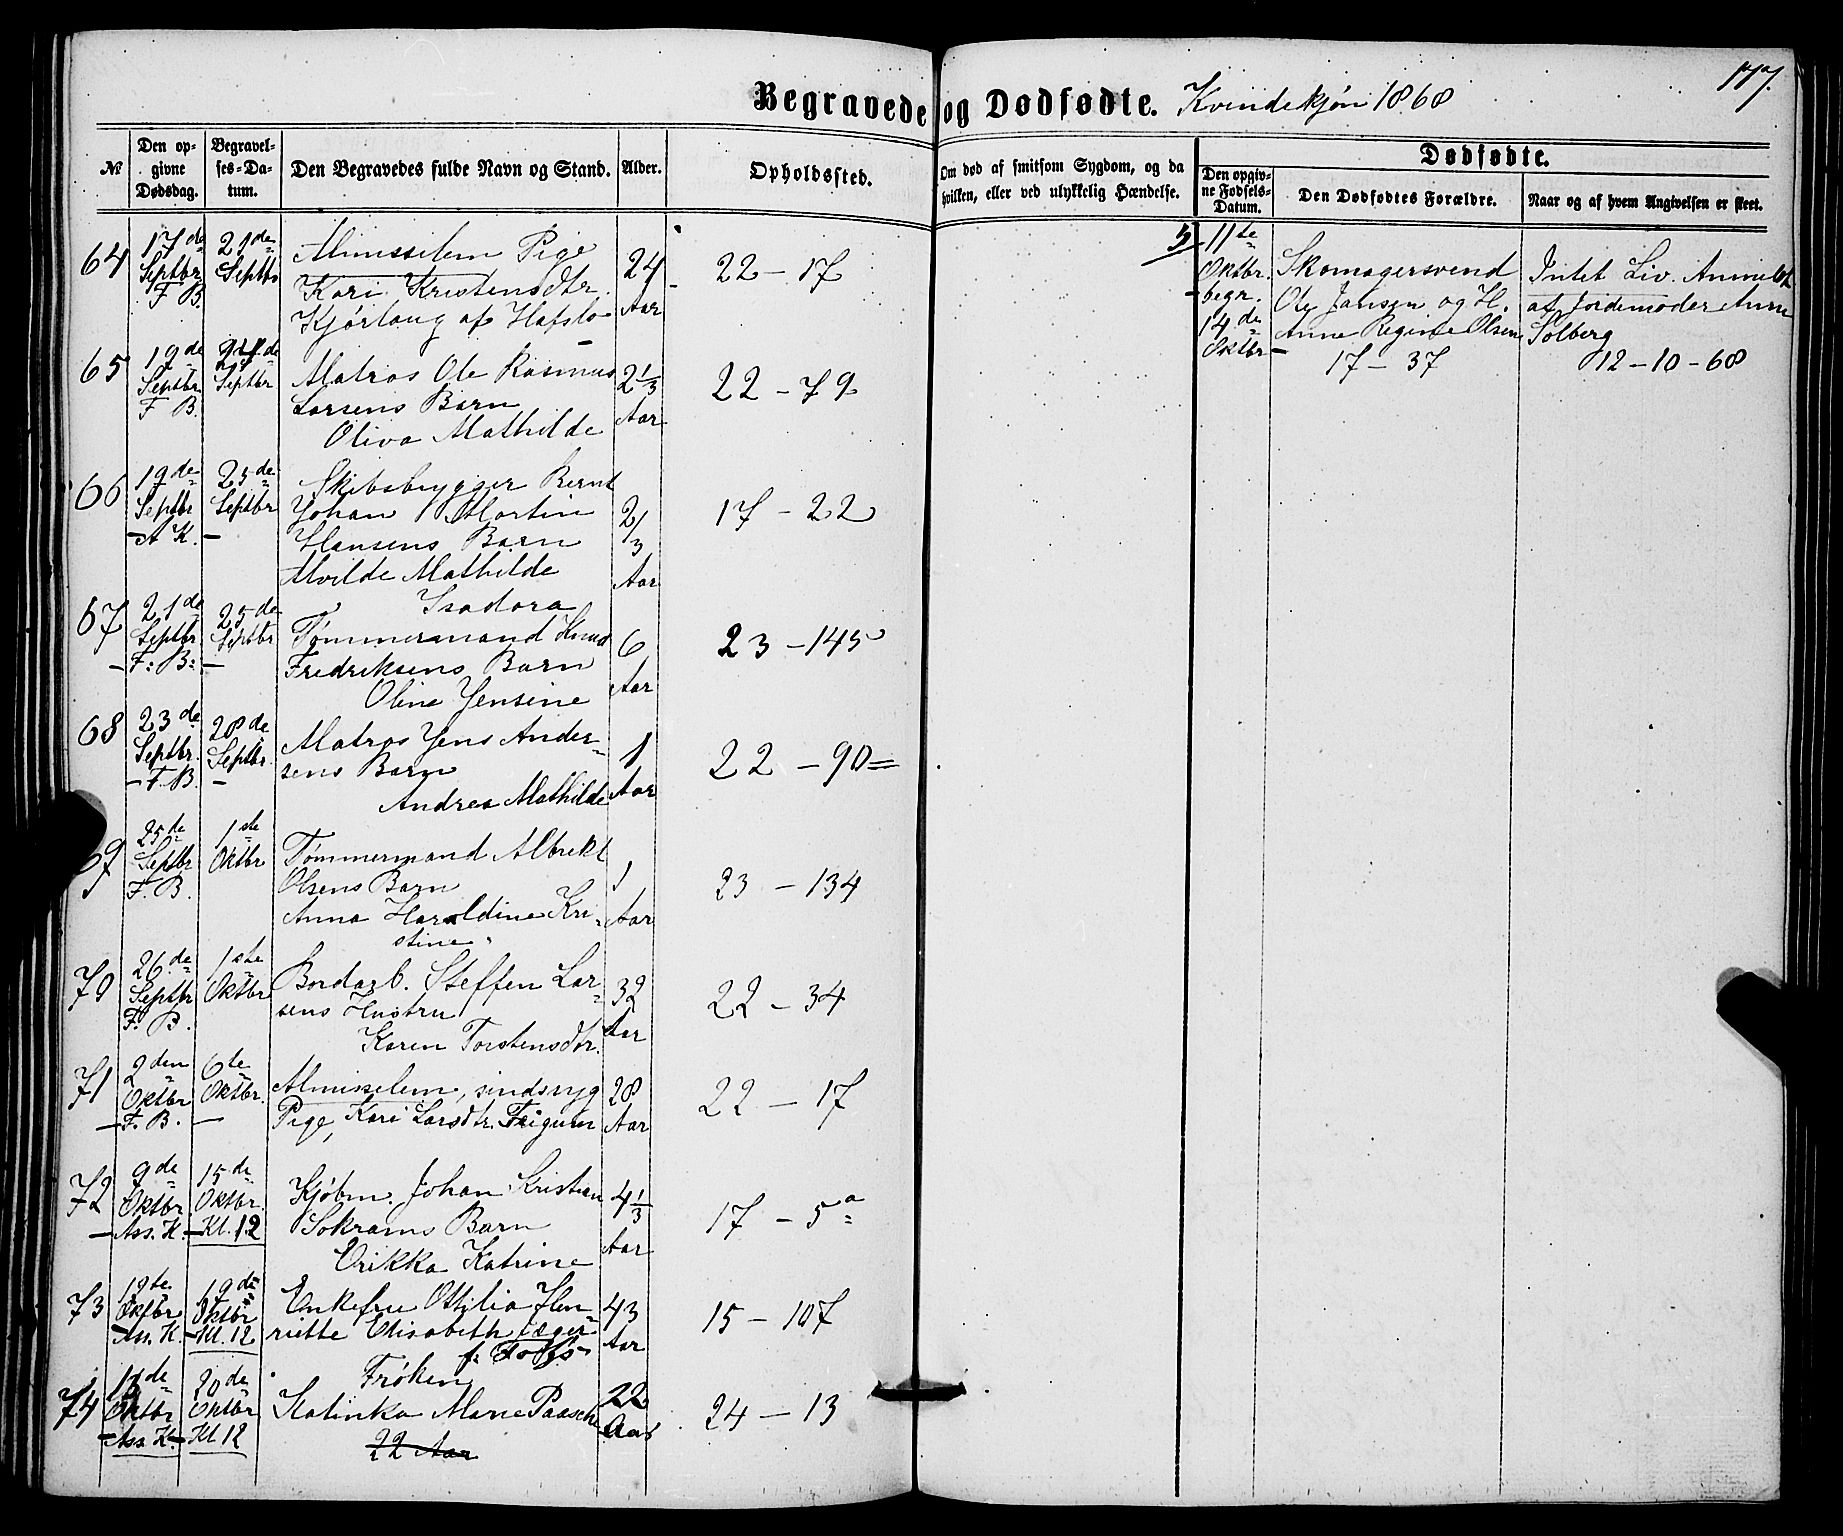 177.
Begravede og Dødfødte. Kvindekjøn 1868
№
Den opgivne Dødsdag.
Begravelses-Datum.
Den Begravedes fulde Navn og Stand.
Alder.
Opholdssted.
Om død af smitsom Sygdom, og da hvilken, eller ved ulykkelig Hændelse.
Dødfødte.
Den opgivne Fødsels-Datum.
Den Dødfødtes Forældre.
Naar og af hvem Angivelsen er skeet.
64 17de Septbr F B. 21de Septbr
Almisselem Pige
Kari Kristensdtr.
Kjørlaug af Hafslo
24 Aar
22 - 17
65 19de Septbr F B. 24de Septbr
Matros Ole Rasmus
Larsens Barn
Oliva Mathilde
2 1/3 Aar
22 - 79
66 19de Septbr A K. 25de Septbr
Skibsbygger Bernt
Johan Martin
Hansens Barn
Alvilde Mathilde
Isadora
2/3 Aar
17 - 22
67 21de Septbr F: B: 25de Septbr
Tømmermand Knud
Fredriksens Barn
Oline Jensine
6 Aar
23 - 145
68 23de Septbr. F. B. 28de Septbr.
Matros Jens Ander-
sens Barn
Andrea Mathilde
1 Aar
22 - 90
69 25de Septbr F. B. 1ste Oktbr
Tømmermand Albrekt
Olsens Barn
Anna Haraldine Kri-
stine
1 Aar
23 - 134
70 26de Septbr F. B. 1ste Oktbr
Bordarb. Steffen Lar-
sens Hustru
Karen Torstensdtr.
32 Aar
22 - 34
71 2den Oktbr F. B. 6te Oktbr.
Almisselem, sindssyg
Pige, Kari Larsdtr.
28 Aar
22 - 17
72 9de Oktbr. Ass. K. 15de Oktbr. Kl. 12
Kjøbm. Johan Kristian
Barn
Erikka Katrine
4 1/3 Aar
17 - 5a
73 12te Oktbr Ass. K. 19de Oktbr Kl. 12
Enkefru Ottilia Hen-
riette Elisabeth
f:
43 Aar
15 - 107
74 17de Oktbr Ass K. 20de Oktbr Kl 12
Frøken
Katinka Marie Paasche
22 Aar
22 Aar
24 - 13
5
11te Oktbr.
begr. 14de Oktbr
Skomagersvend
Ole Jansen og H.
Anne Regine Olsen
17 - 37
Intet Liv. Anmeldt
af Jordemoder Anne
Solberg
12 - 10 - 68